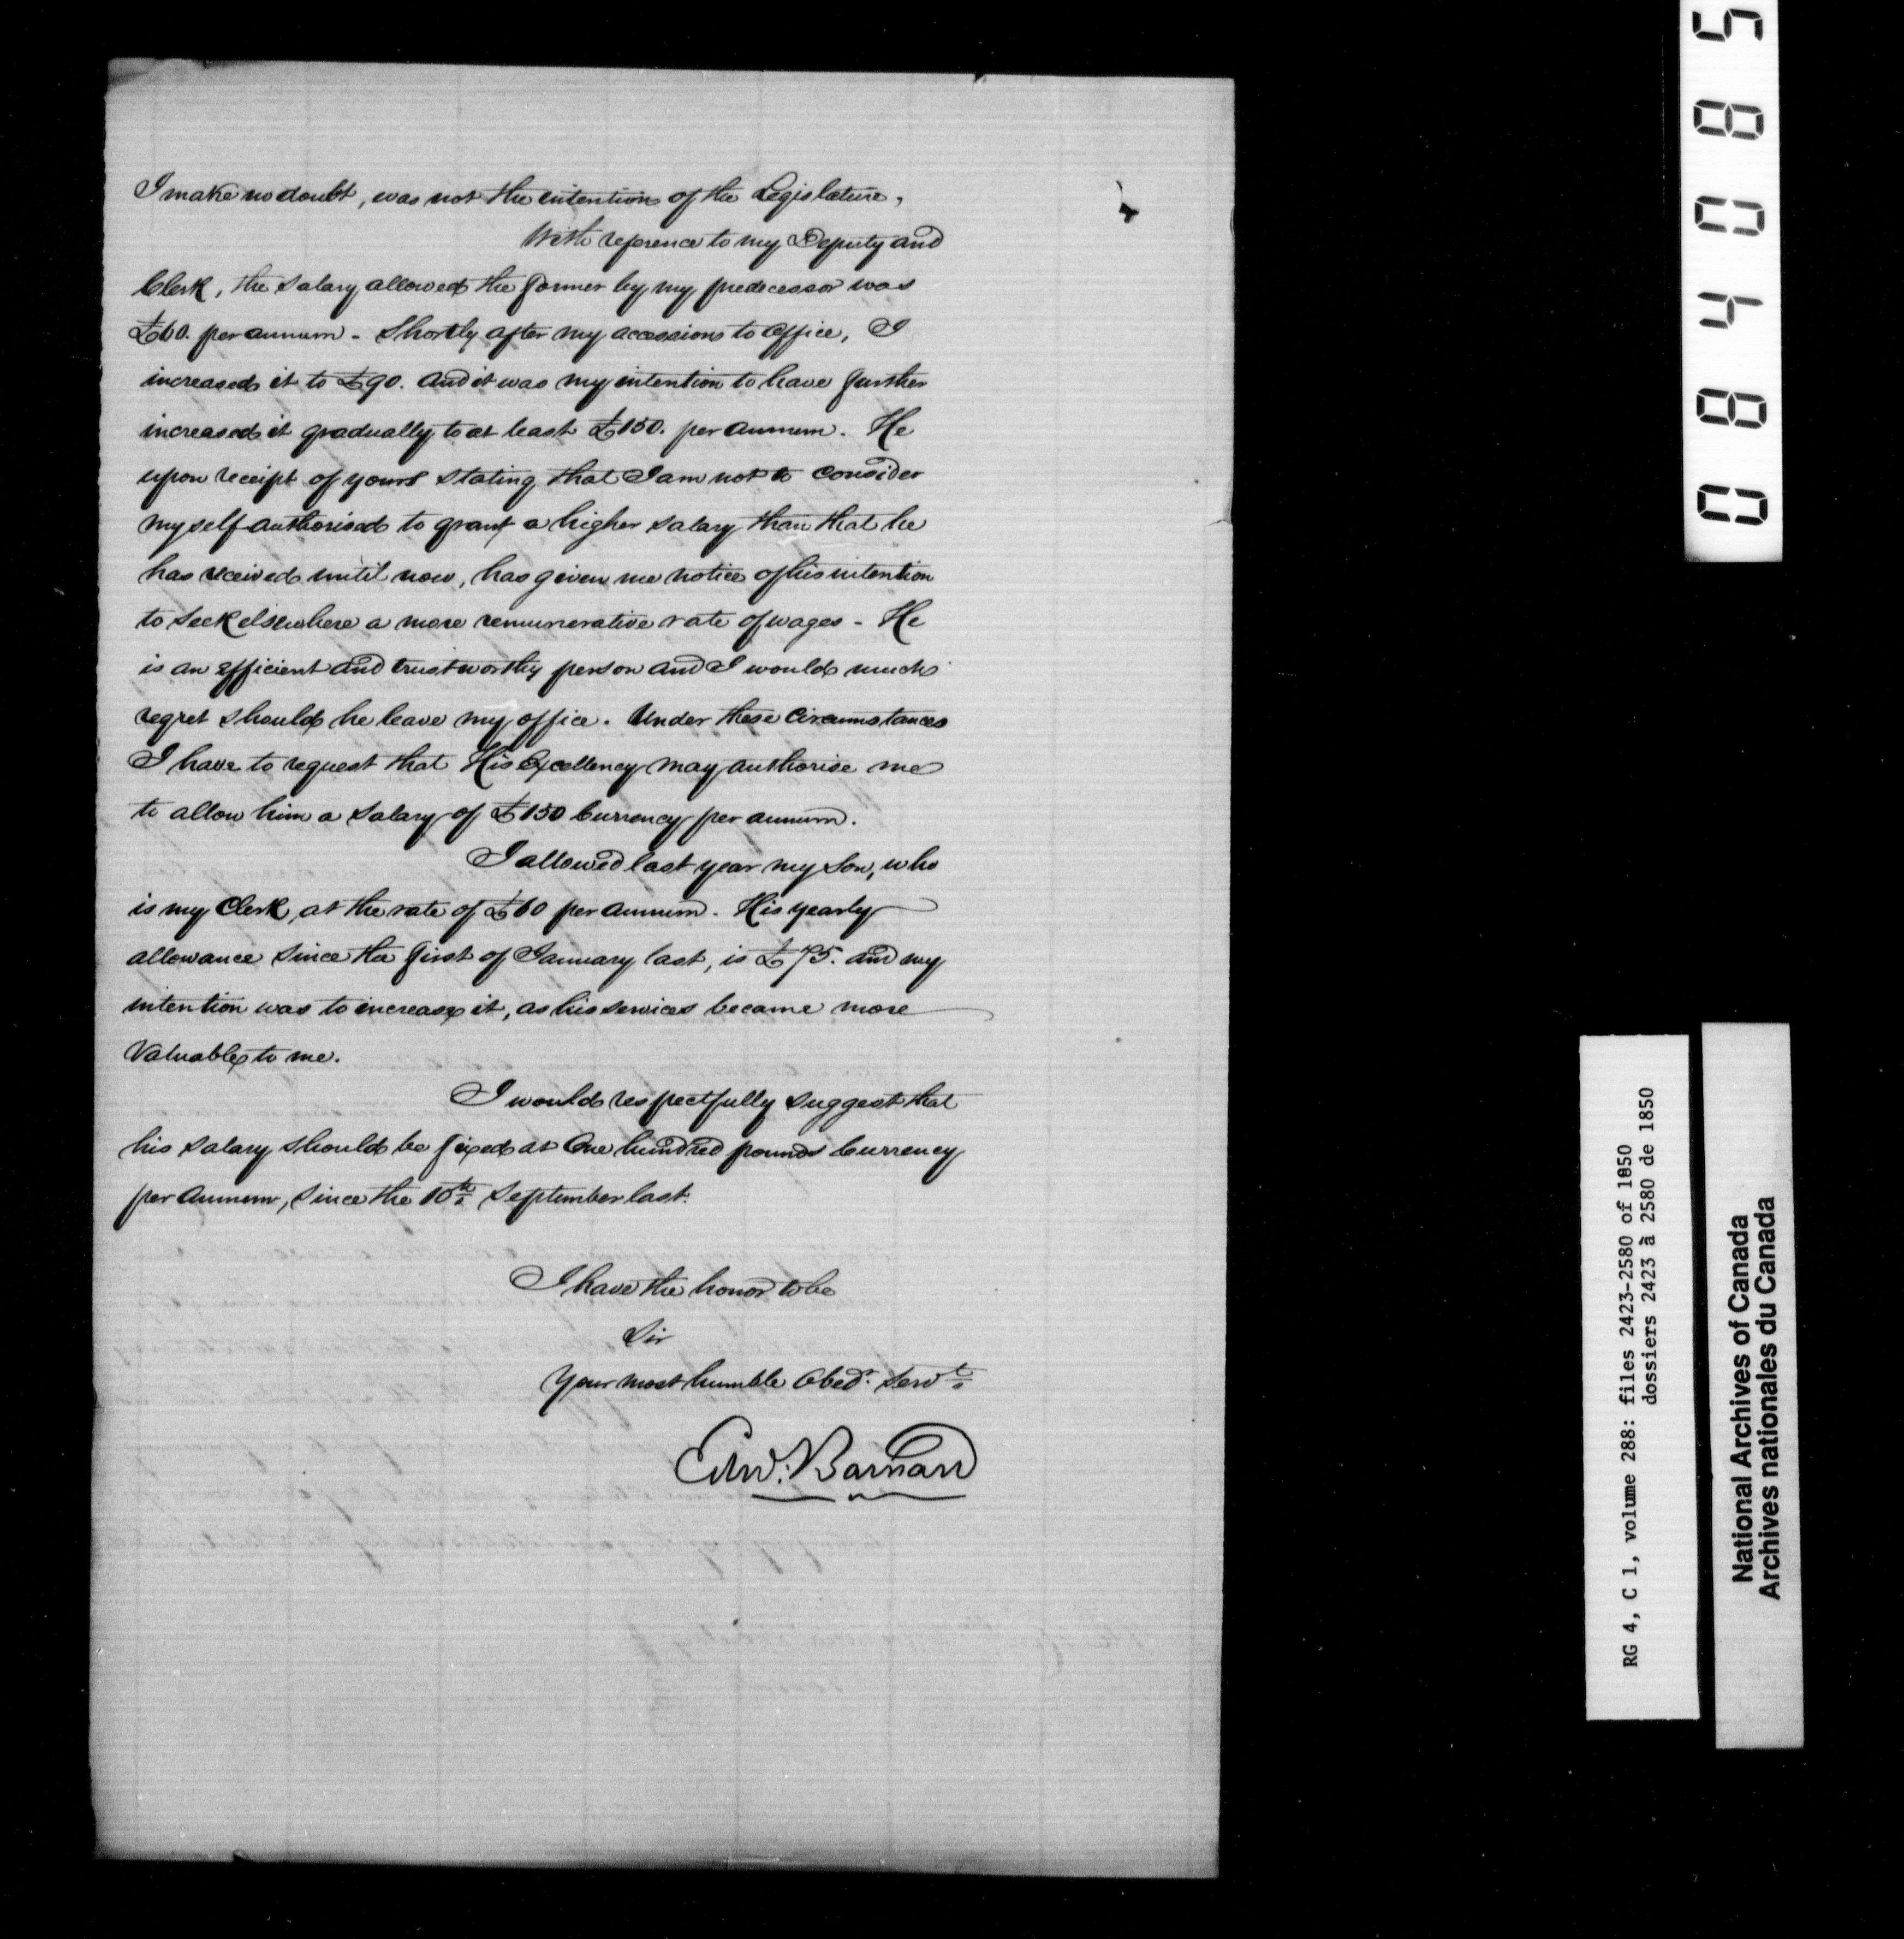 I make no doubt, was not the intention of the Legislature,
With reference to my Deputy and
Clerk, the salary allowed the former by my predecessor was
£60. per annum - Shortly after my accession to office, I
increased it to £90. and it was my intention to have further
increased it gradually to at least £150. per annum. He
upon receipt of yours stating that I am not to consider
myself authorised to grant a higher salary than that he
has received until now, has given me notice of his intention
to seek elsewhere a more remunerative rate of wages - He
is an efficient and trustworthy person and I would much
regret should he leave my office. Under these circumstances
I have to request that His Excellency may authorise me
to allow him a salary of £150 Currency per annum.
I allowed last year my Son, who
is my Clerk, at the rate of £60 per annum. His yearly
allowance since the first of January last, is £75. and my
intention was to increase it, as his services became more
Valuable to me.
I would respectfully suggest that
his salary should be fixed at One hundred pounds Currency
per annum, since the 10th September last.
I have the honor to be
Sir
Your most humble Obed. Servt
Edw. Barnard
084085
RG 4, C 1, volume 288: files 2423-2580 of 1850
dossiers 2423 à 2580 de 1850
National Archives of Canada
Archives nationales du Canada